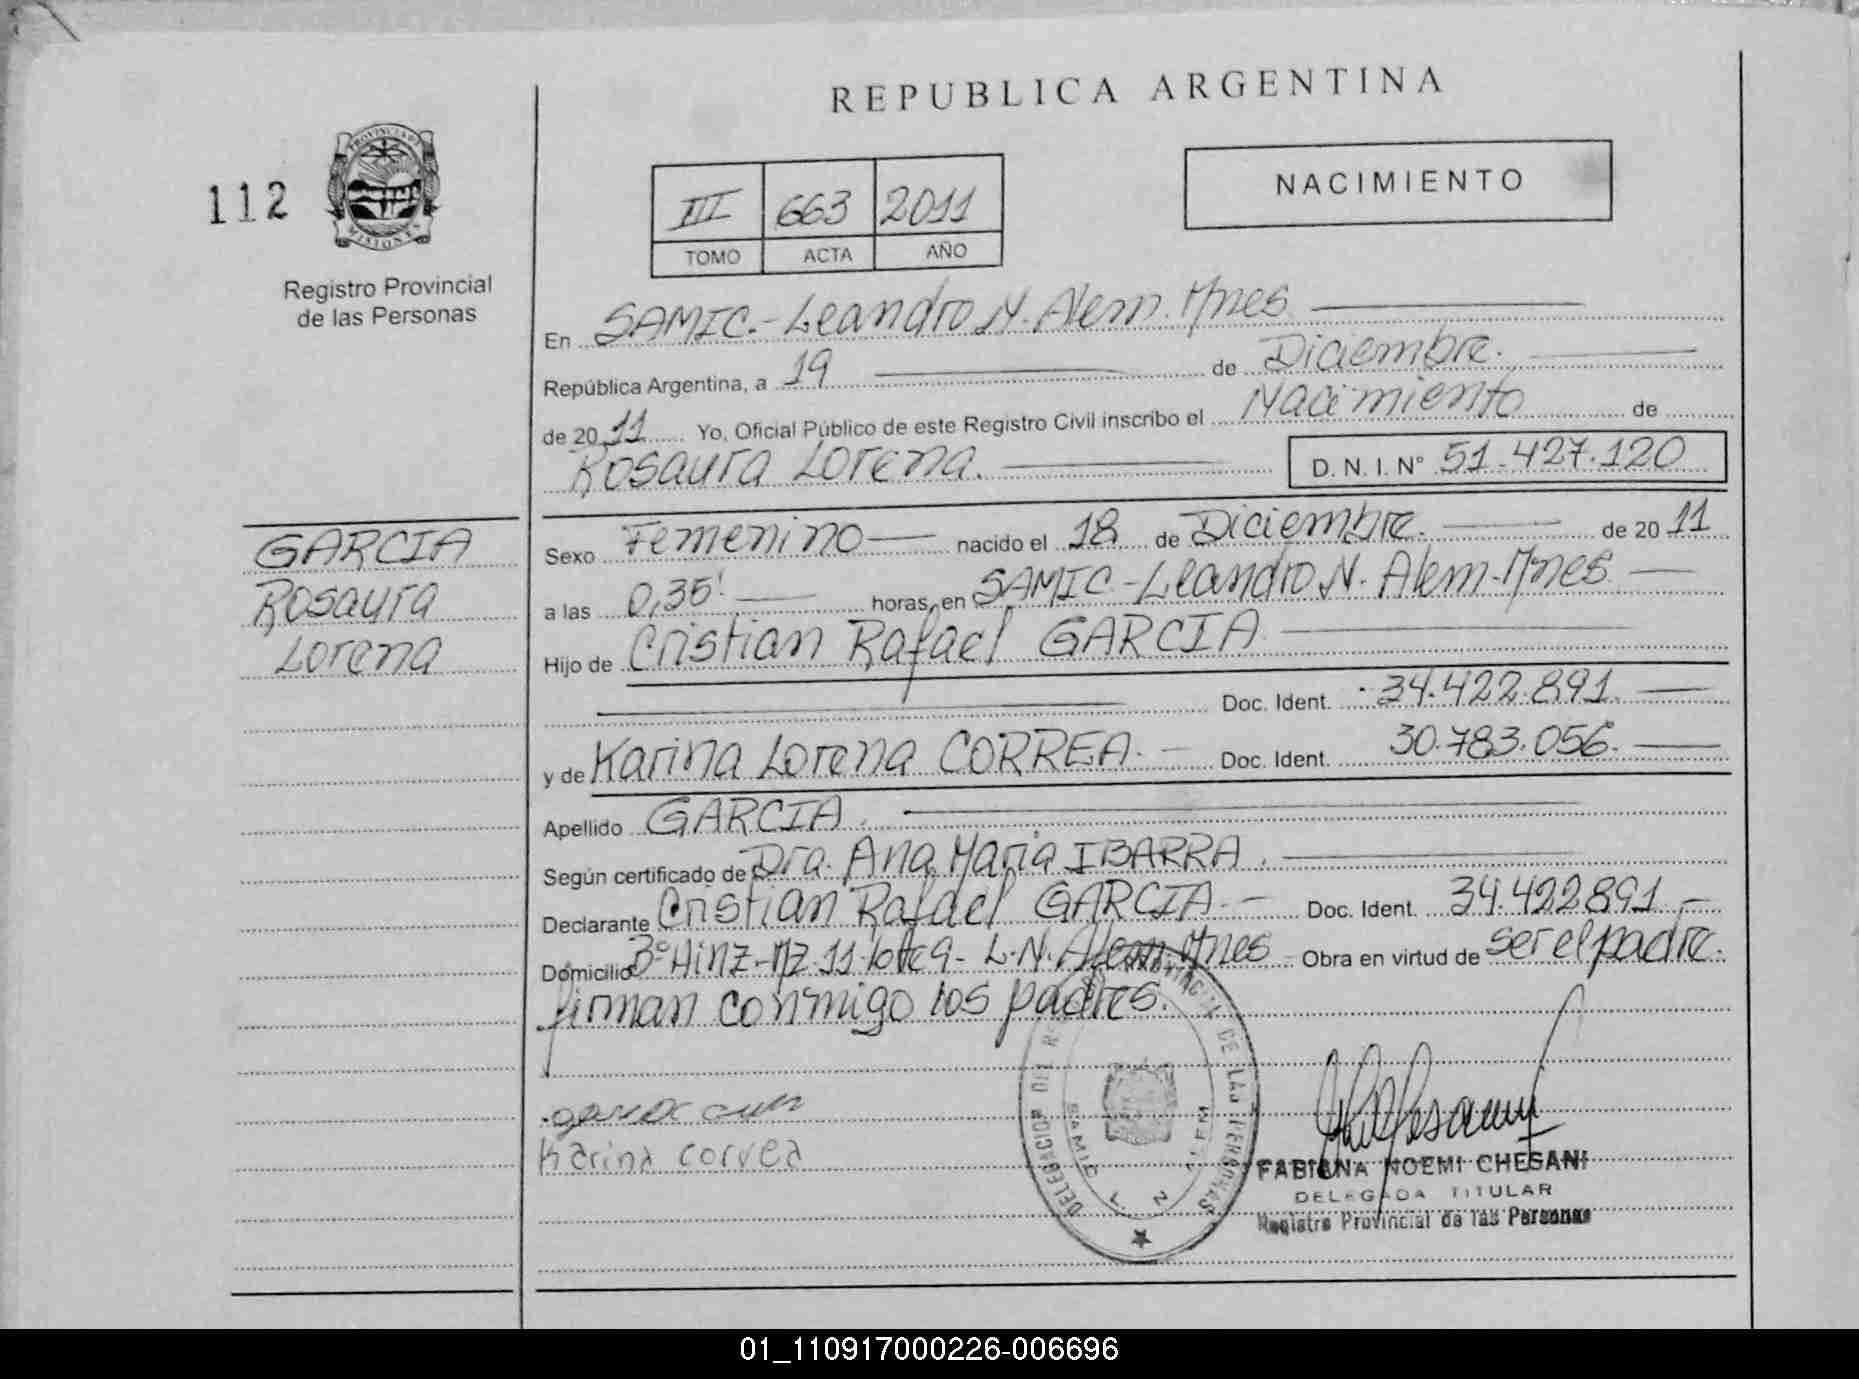 REPUBLICA ARGENTINA
112
PROVINCIA DE
MISIONES
Registro Provincial
de las Personas
III 663 2011
TOMO ACTA AÑO
NACIMIENTO
En SAMIC.- Leandro N. Alem. Mnes
República Argentina, a 19 de Diciembre.
de 2011 Yo, Oficial Público de este Registro Civil inscribo el Nacimiento de
Rosaura Lorena. D. N. I. Nº 51.427.120
GARCIA
Rosaura
Lorena
Sexo Femenino nacido el 18 de Diciembre. de 2011
a las 0,35' horas, en SAMIC - Leandro N. Alem - Mnes
Hijo de Cristian Rafael GARCIA
Doc. Ident. 34.422.891.
y de Karina Lorena CORREA. Doc. Ident. 30.783.056.
Apellido GARCIA.
Según certificado de Dra. Ana Maria IBARRA.
Declarante Cristian Rafael GARCIA. Doc. Ident. 34.422891
Domicilio Bº Hinz - Mz. 11 - lote 9 - L.N. Alem. Mnes Obra en virtud de ser el padre.
firman conmigo los padres.
garcia
Karina correa
DELEGACION REGISTRO PROVINCIAL DE LAS PERSONAS
SAMIC L N ALEM
FABIANA NOEMI CHESANI
DELEGADA TITULAR
Registro Provincial de las Personas
01_110917000226-006696